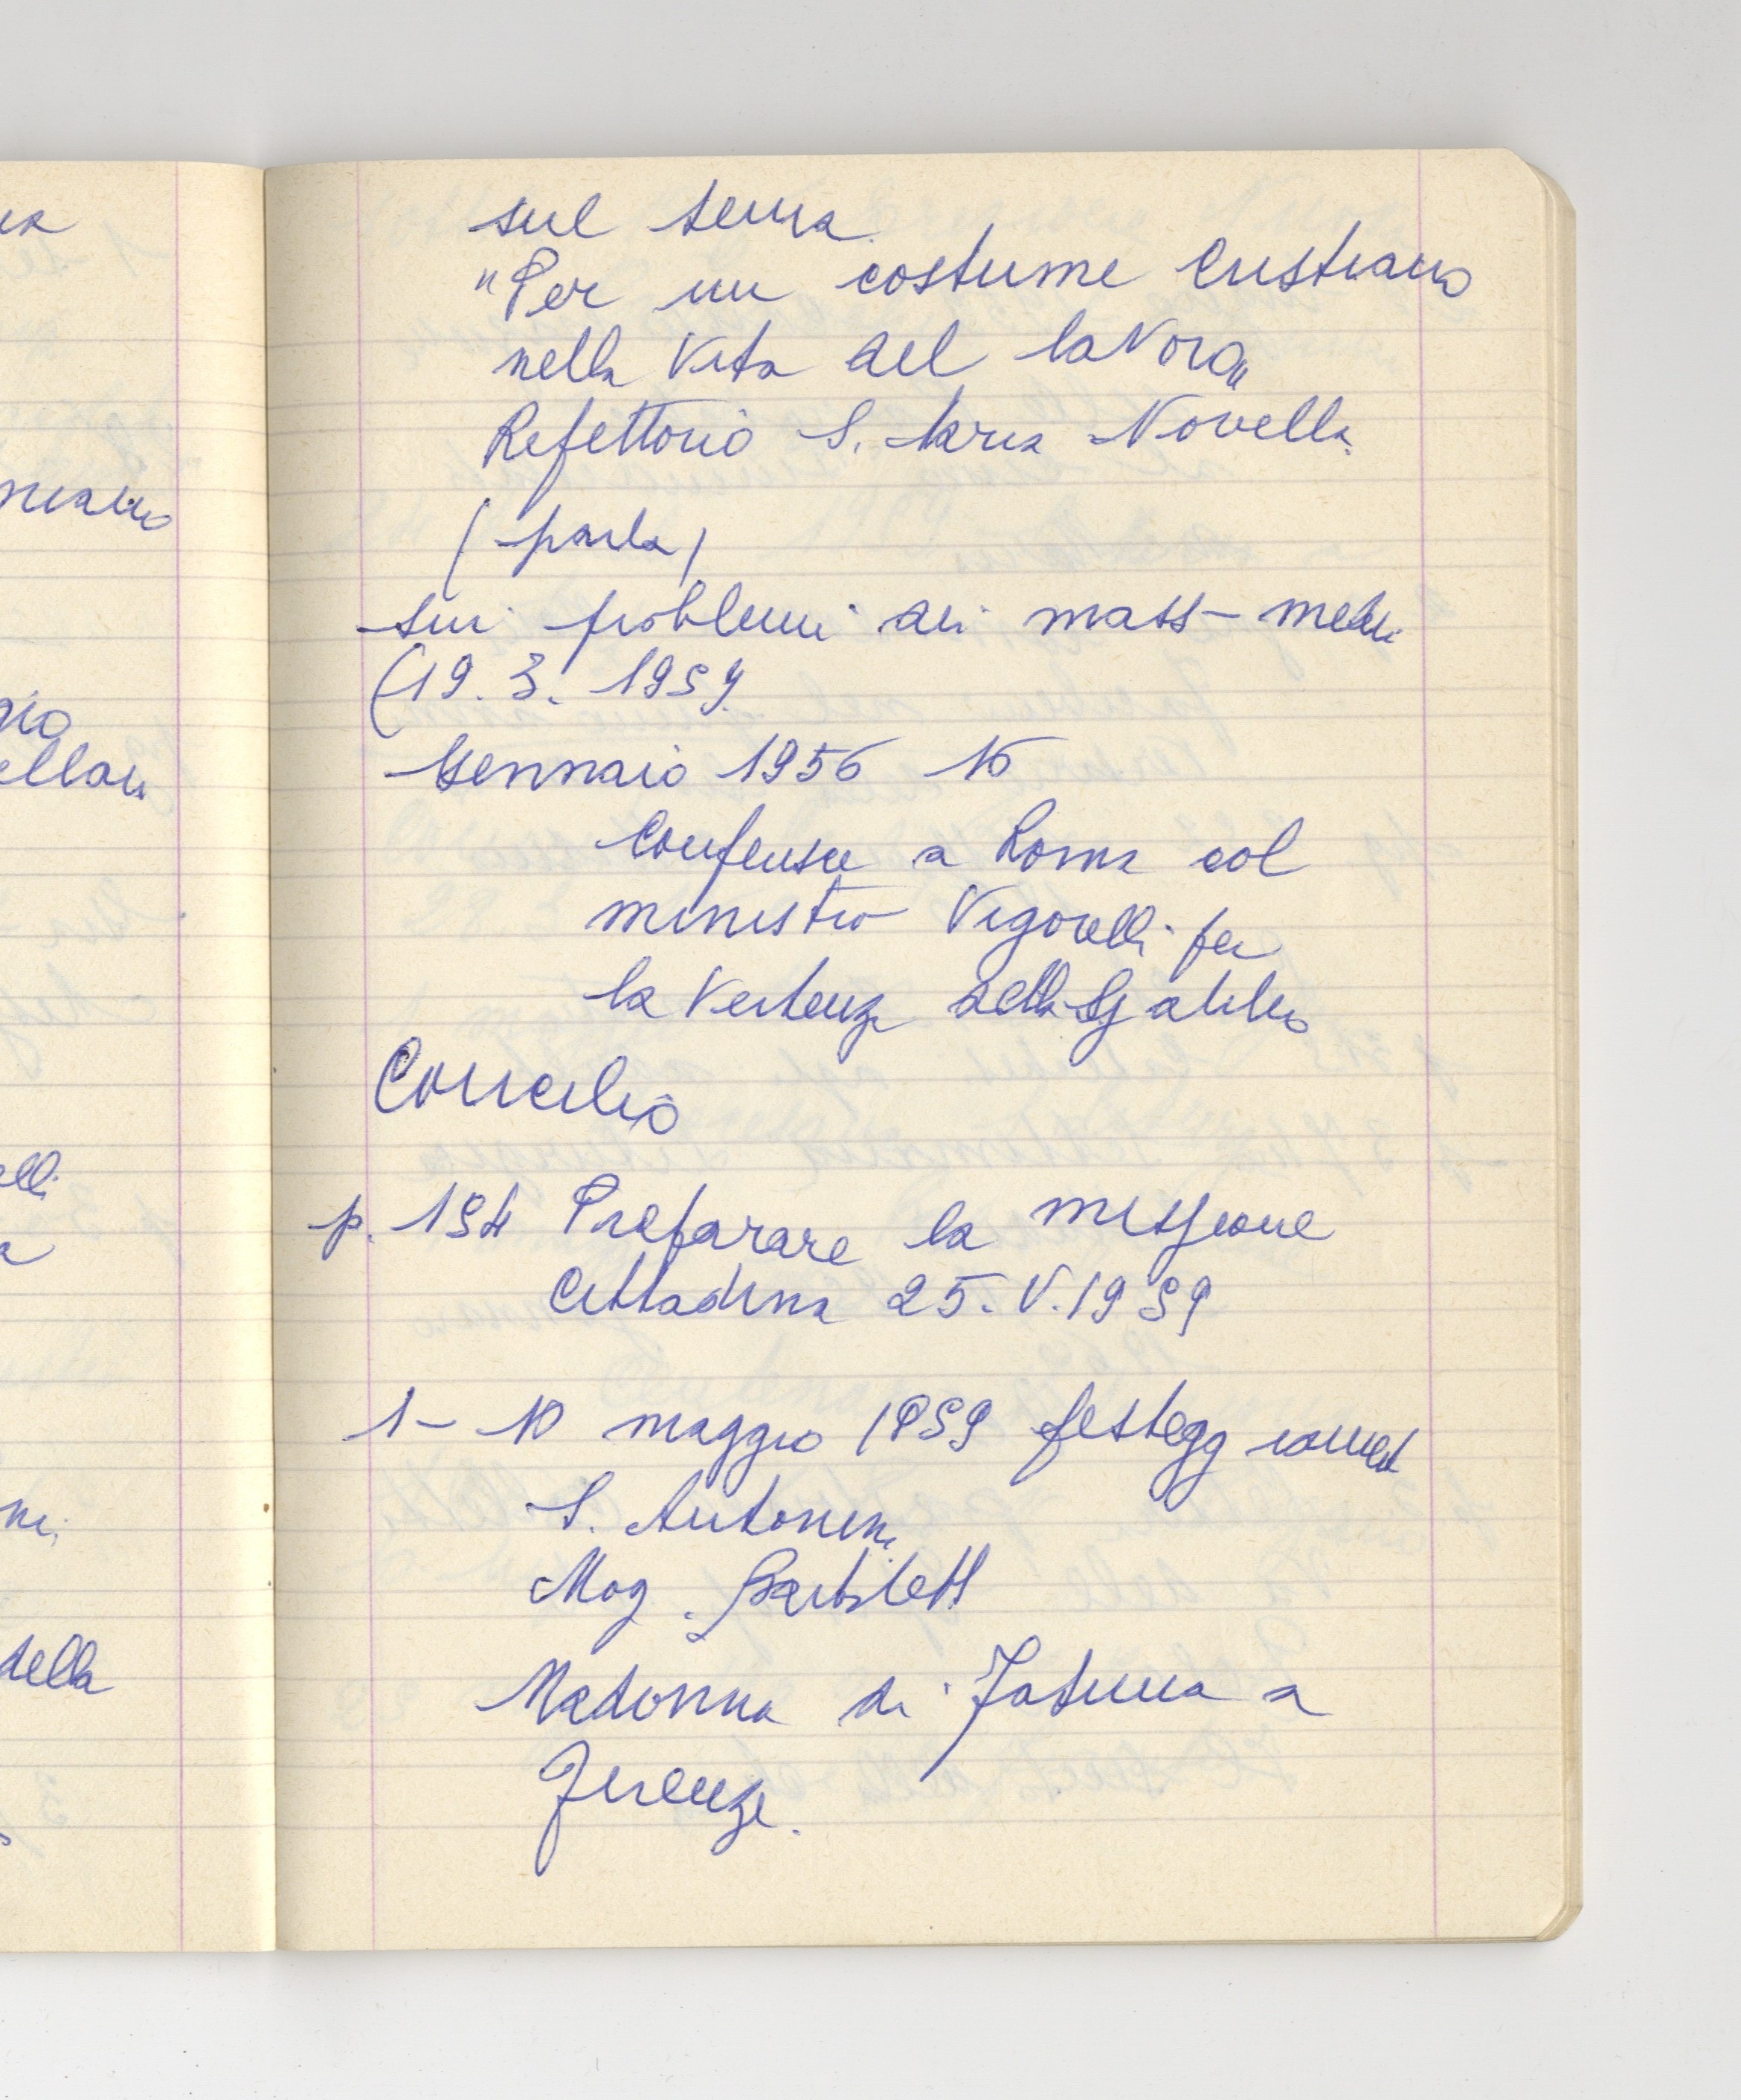 sul tema
"Per un costume Cristiano
nella Vita del lavoro"
Refettorio S. Maria Novella.
(parla)
sui problemi dei mass-media
(19. 3. 1959
Gennaio 1956 16
Conferisce a Roma col
ministro Vigorelli per
la Vertenza della Galileo
Concilio
p. 154 Preparare la missione
Cittadina 25. V. 1959
1 - 10 maggio 1959 festeggiament
S. Antonino
Mog. Bartoletti
Madonna di Fatima a
Firenze.
niano
gio
ellan
elli
della